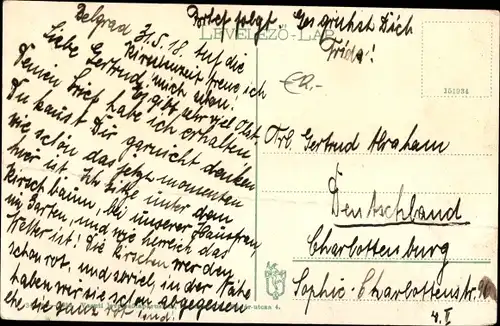 Brief folgt. Es grüßt Dich
Frida!
Belgrad 31.5.18. Auf die
LEVELEZŐ-LAP
Liebe Gertrud! Kirschenzeit freue ich
mich schon!
Es gibt sehr viel Obst.
Deinen Brief habe ich erhalten
Du kannst Dir garnicht denken
wie schön das jetzt momentan
hier ist. Ich sitze unter dem
Kirschbaum, bei unserer Hausfrau,
im Garten, und wie herrlich das
Wetter ist! Die Kirschen werden
schon rot, und soviel, in der Nähe
haben wir sie schon abgegessen
ehe sie ganz rot sind!
351234
Frl. Gertrud Abraham
Deutschland
Charlottenburg
Sophie-Charlottenstr.
4. I
utcza 4.